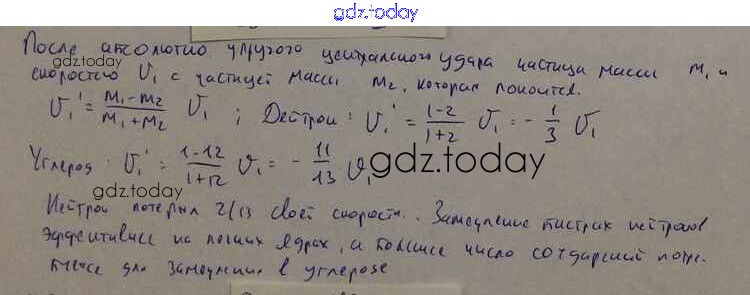 gdz.today
После абсолютно упругого центрального удара частица массы m₁ и
скоростью υ₁ с частицей массы m₂, которая покоится.
υ₁' = (m₁-m₂)/(m₁+m₂) υ₁ ; Дейтрон: υ₁' = (1-2)/(1+2) υ₁ = - 1/3 υ₁
Углерод: υ₁' = (1-12)/(1+12) υ₁ = - 11/13 υ₁
gdz.today
gdz.today
Нейтрон потерял 2/13 своей скорости. Замедление быстрых нейтронов
эффективнее на легких ядрах, а большее число соударений потре-
буется для замедления в углероде
gdz.today